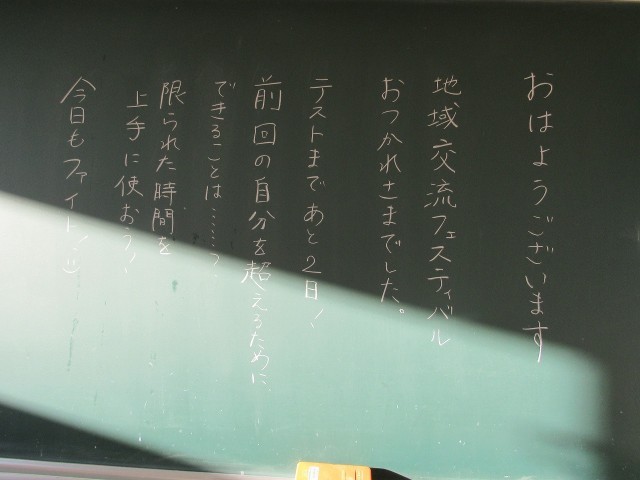 おはようございます
地域交流フェスティバル
おつかれさまでした。
テストまであと2日!
前回の自分を超えるために
できることは……?
限られた時間を
上手に使おう!
今日もファイト!:)